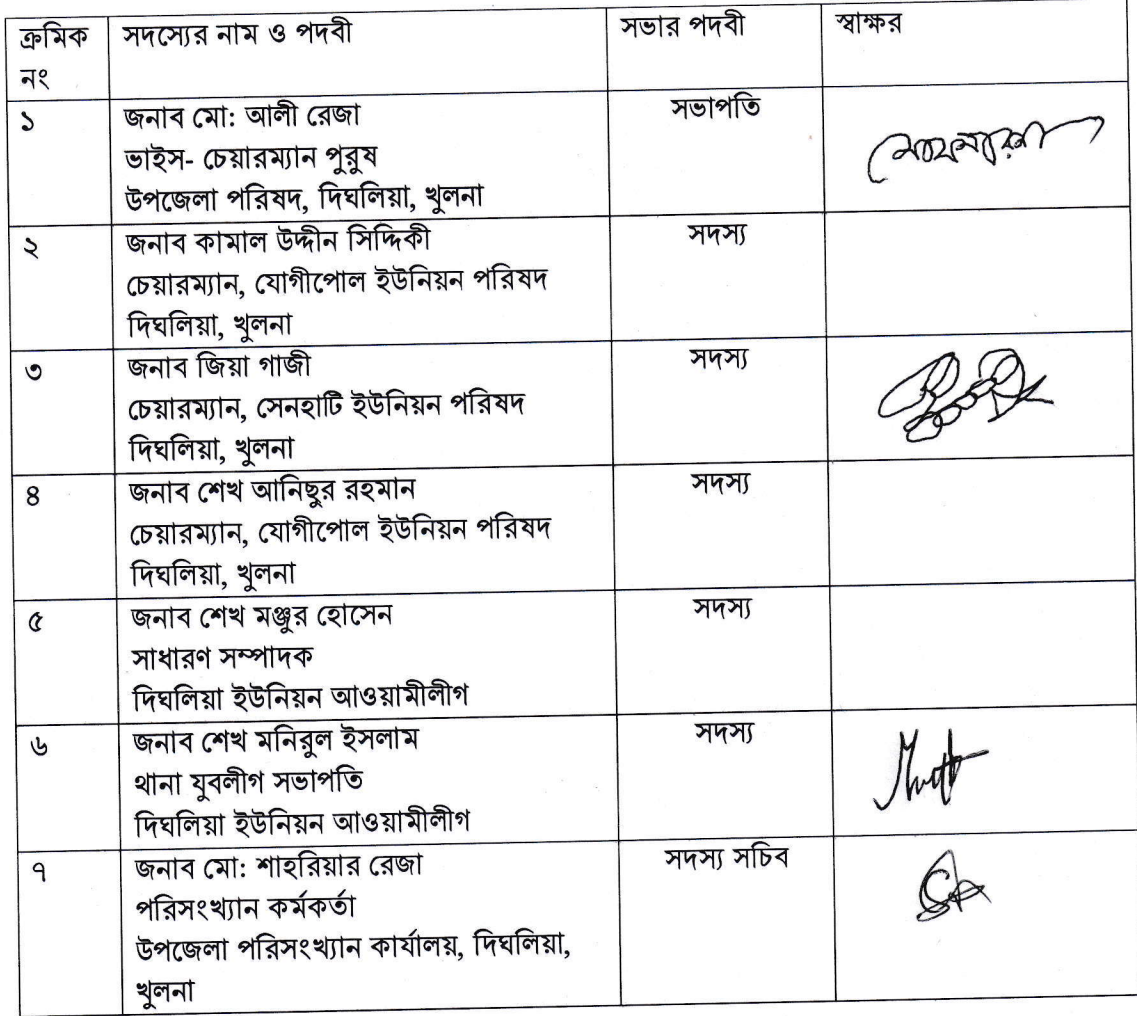 ক্রমিক নং সদস্যের নাম ও পদবী সভার পদবী স্বাক্ষর
১ জনাব মো: আলী রেজা সভাপতি
ভাইস- চেয়ারম্যান পুরুষ
উপজেলা পরিষদ, দিঘলিয়া, খুলনা
২ জনাব কামাল উদ্দীন সিদ্দিকী সদস্য
চেয়ারম্যান, যোগীপোল ইউনিয়ন পরিষদ
দিঘলিয়া, খুলনা
৩ জনাব জিয়া গাজী সদস্য
চেয়ারম্যান, সেনহাটি ইউনিয়ন পরিষদ
দিঘলিয়া, খুলনা
৪ জনাব শেখ আনিছুর রহমান সদস্য
চেয়ারম্যান, যোগীপোল ইউনিয়ন পরিষদ
দিঘলিয়া, খুলনা
৫ জনাব শেখ মঞ্জুর হোসেন সদস্য
সাধারণ সম্পাদক
দিঘলিয়া ইউনিয়ন আওয়ামীলীগ
৬ জনাব শেখ মনিরুল ইসলাম সদস্য
থানা যুবলীগ সভাপতি
দিঘলিয়া ইউনিয়ন আওয়ামীলীগ
৭ জনাব মো: শাহরিয়ার রেজা সদস্য সচিব
পরিসংখ্যান কর্মকর্তা
উপজেলা পরিসংখ্যান কার্যালয়, দিঘলিয়া,
খুলনা